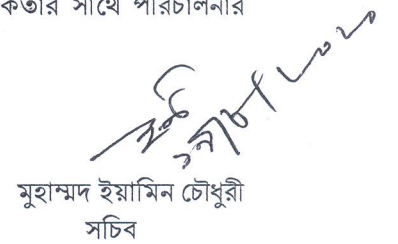 কতার সাথে পরিচালনার
মুহাম্মদ ইয়ামিন চৌধুরী
সচিব